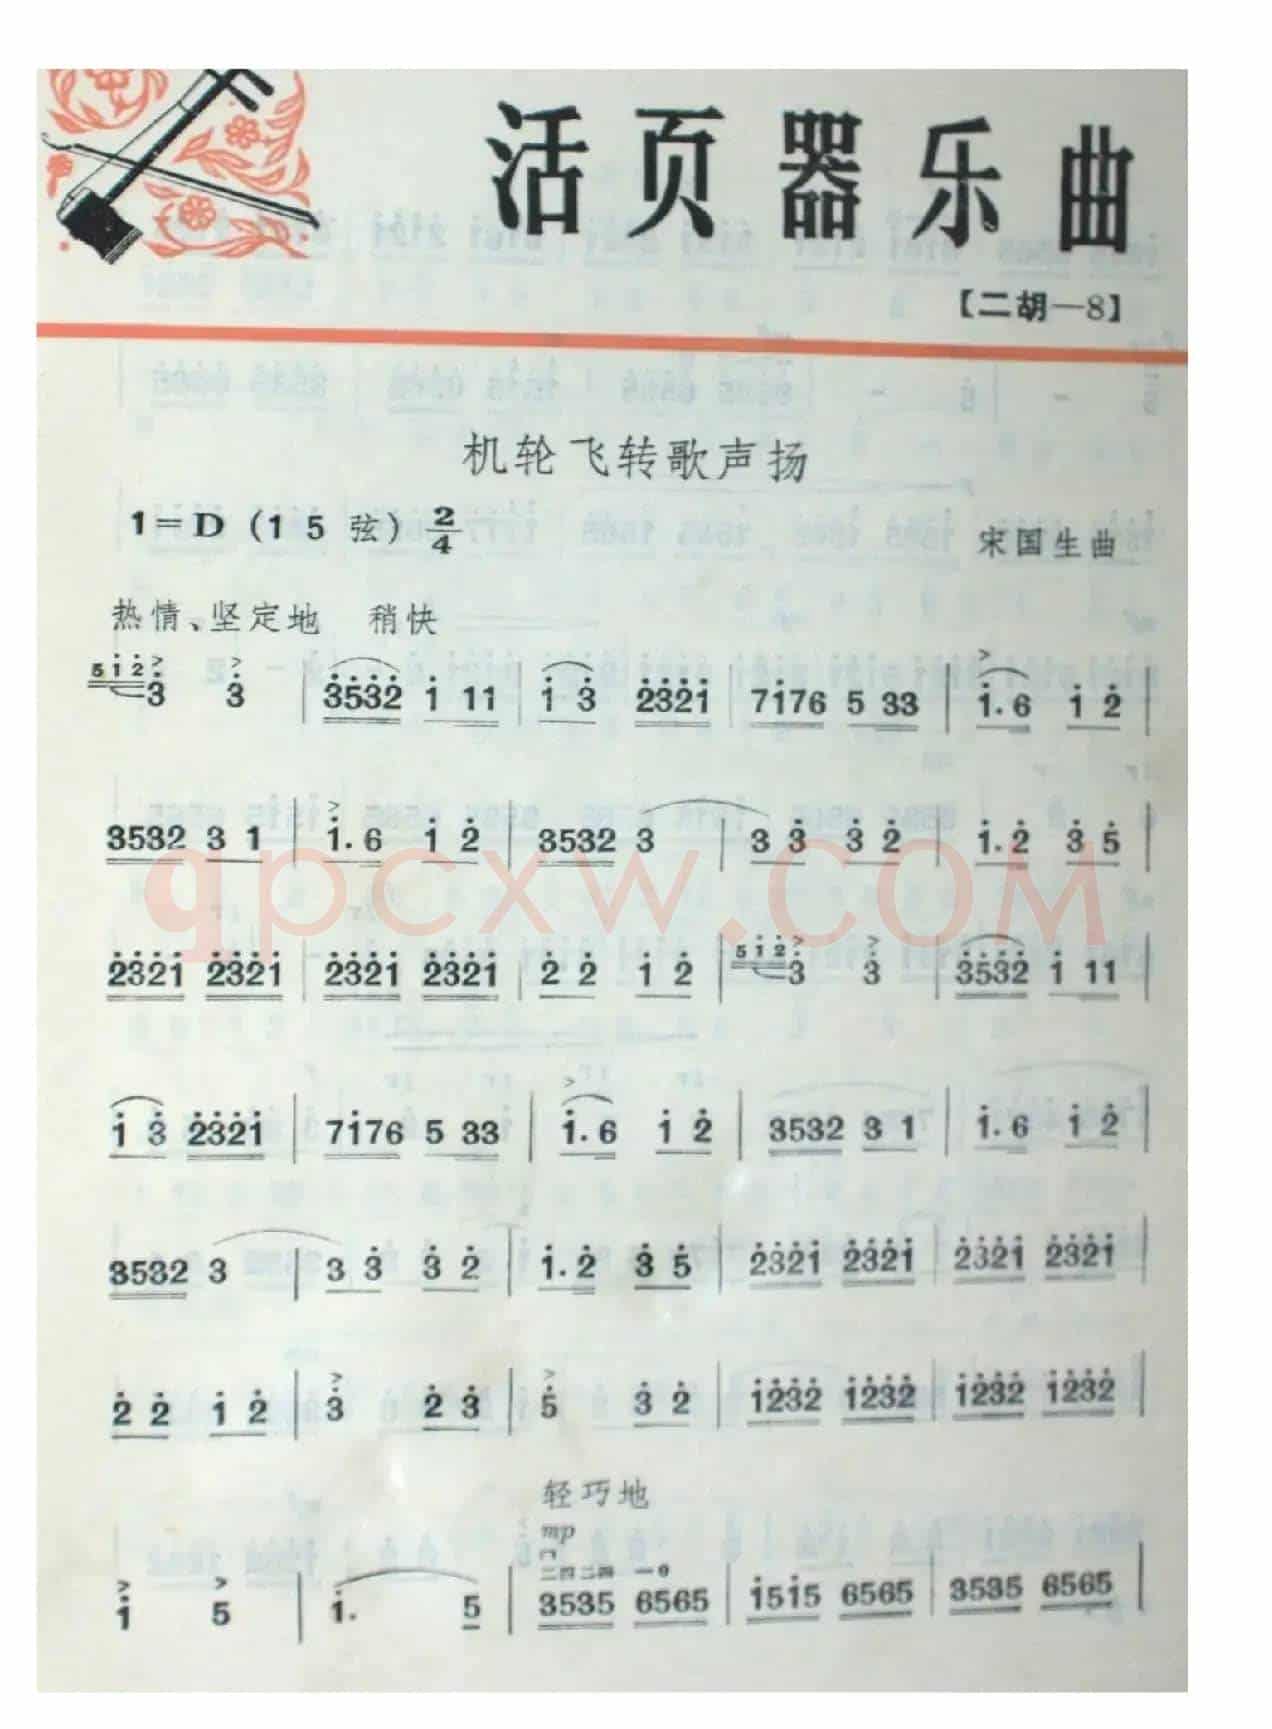 活页器乐曲
【二胡—8】
机轮飞转歌声扬
1=D (1 5 弦) 2/4
宋国生曲
热情、坚定地 稍快
512 3 3 | 3532 1 11 | 1 3 2321 | 7176 5 33 | 1. 6 1 2 |
3532 3 1 | 1. 6 1 2 | 3532 3 | 3 3 3 2 | 1. 2 3 5 |
qpcxw.COM
2321 2321 | 2321 2321 | 2 2 1 2 | 512 3 3 | 3532 1 11 |
1 3 2321 | 7176 5 33 | 1. 6 1 2 | 3532 3 1 | 1. 6 1 2 |
3532 3 | 3 3 3 2 | 1. 2 3 5 | 2321 2321 | 2321 2321 |
2 2 1 2 | 3 2 3 | 5 3 2 | 1232 1232 | 1232 1232 |
轻巧地
mp
二四二四 一0
1 5 | 1. 5 | 3535 6565 | 1515 6565 | 3535 6565 |